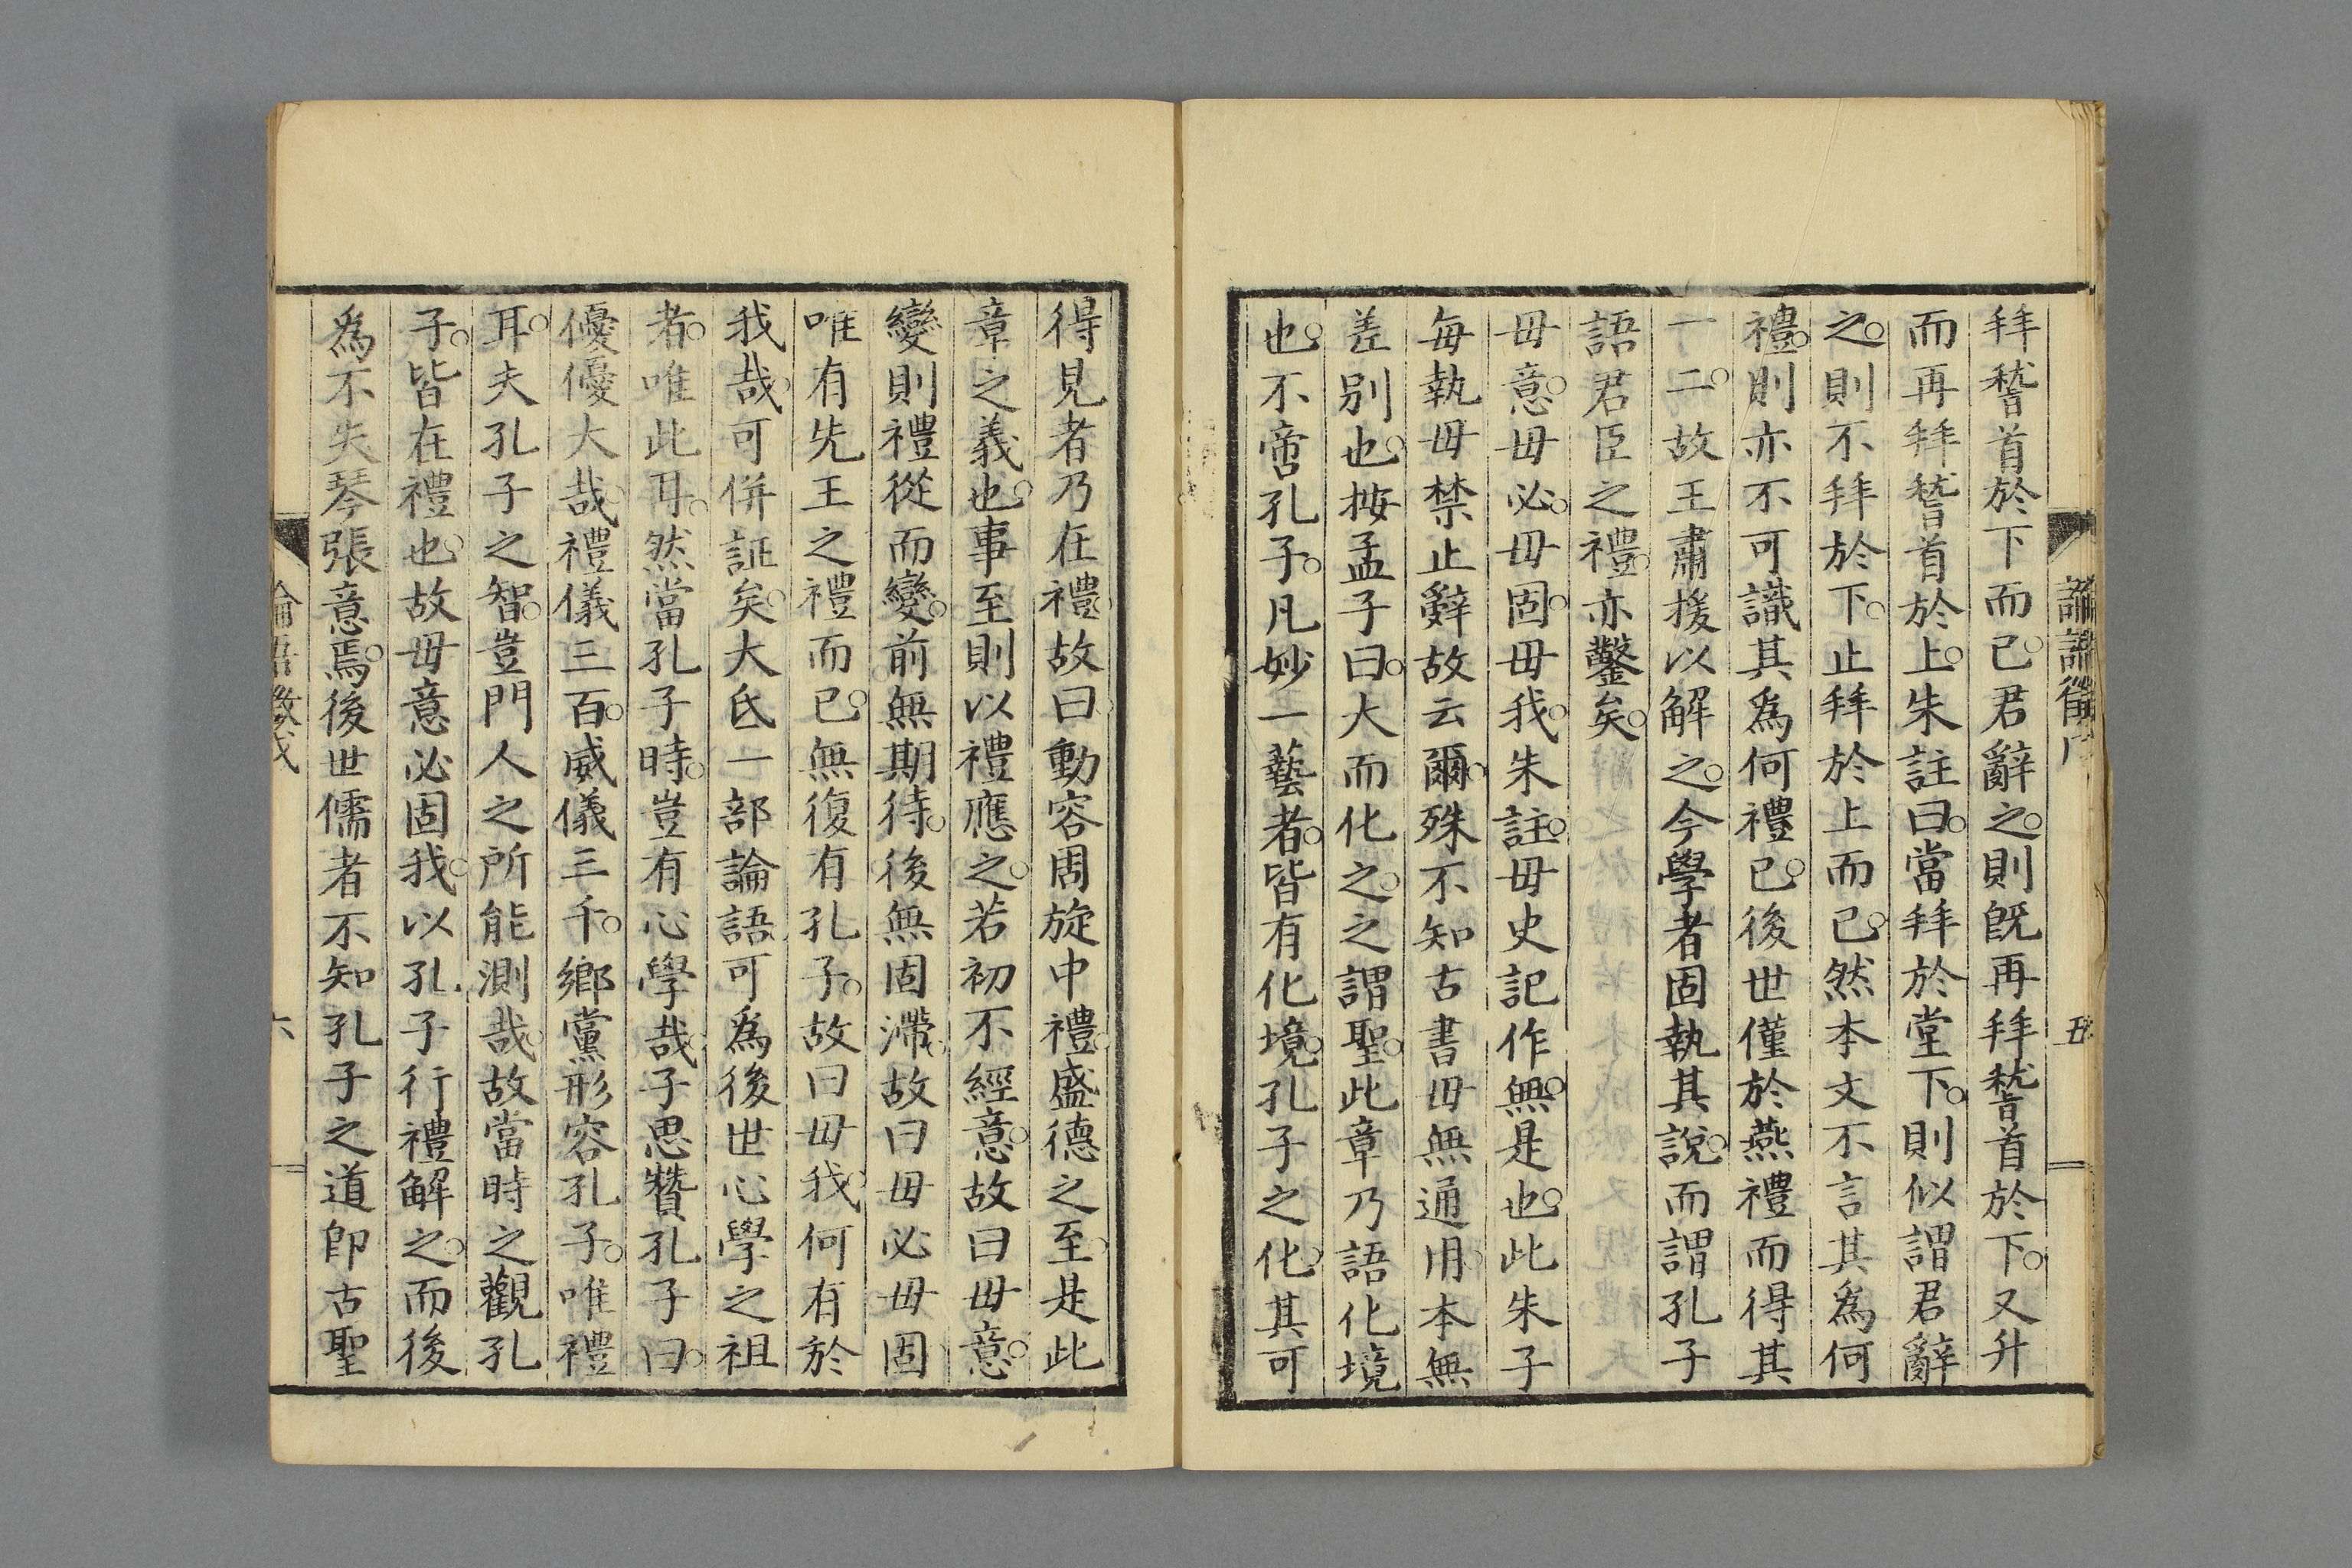 拜稽首於下而已君辭之則旣再拜稽首於下又升
而再拜稽首於上朱註曰當拜於堂下則似謂君辭
之則不拜於下止拜於上而已然本文不言其爲何
禮則亦不可識其爲何禮已後世僅於燕禮而得其
一二故王肅援以解之今學者固執其說而謂孔子
語君臣之禮亦鑿矣
毋意毋必毋固毋我朱註毋史記作無是也此朱子
每執毋禁止辭故云爾殊不知古書毋無通用本無
差別也按孟子曰大而化之之謂聖此章乃語化境
也不啻孔子凡妙一藝者皆有化境孔子之化其可
得見者乃在禮故曰動容周旋中禮盛德之至是此
章之義也事至則以禮應之若初不經意故曰毋意
變則禮從而變前無期待後無固滯故曰毋必毋固
唯有先王之禮而已無復有孔子故曰毋我何有於
我哉可併証矣大氐一部論語可爲後世心學之祖
者唯此耳然當孔子時豈有心學哉子思贊孔子曰
優優大哉禮儀三百威儀三千鄉黨形容孔子唯禮
耳夫孔子之智豈門人之所能測哉故當時之觀孔
子皆在禮也故毋意必固我以孔子行禮解之而後
爲不失琴張意焉後世儒者不知孔子之道卽古聖
六